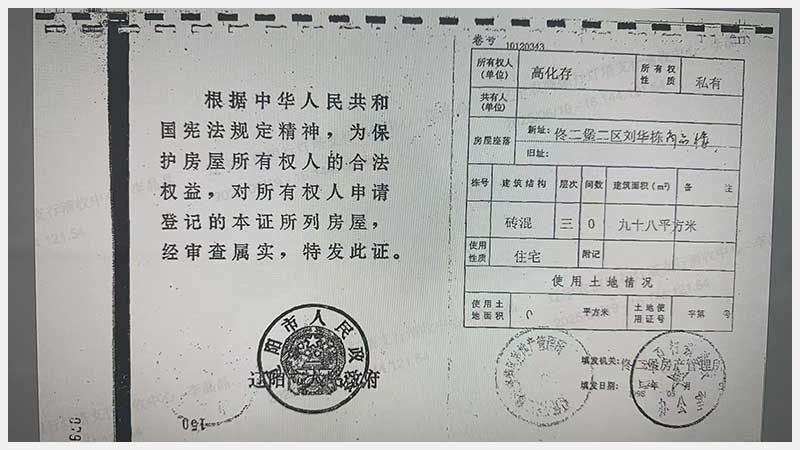 根据中华人民共和
国宪法规定精神，为保
护房屋所有权人的合法
权益，对所有权人申请
登记的本证所列房屋，
经审查属实，特发此证。
阳市人民政
150
卷号 10120343
所有权人(单位) 高化存 所有权性质 私有
共有人(单位)
房屋座落 新址: 佟二堡二区刘华栋
旧址:
栋号 建筑结构 层次 间数 建筑面积(m²) 备注
砖混 三 0 九十八平方米
使用性质 住宅 附记
使用土地情况
使用土地面积 0 平方米 土地使用证号 字第 号
填发机关: 佟二堡房产管理所
填发日期: